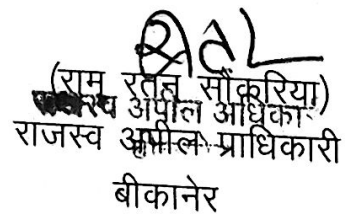 (राम रतन सौंकरिया)
अपील अधिका
राजस्व अपील प्राधिकारी
बीकानेर